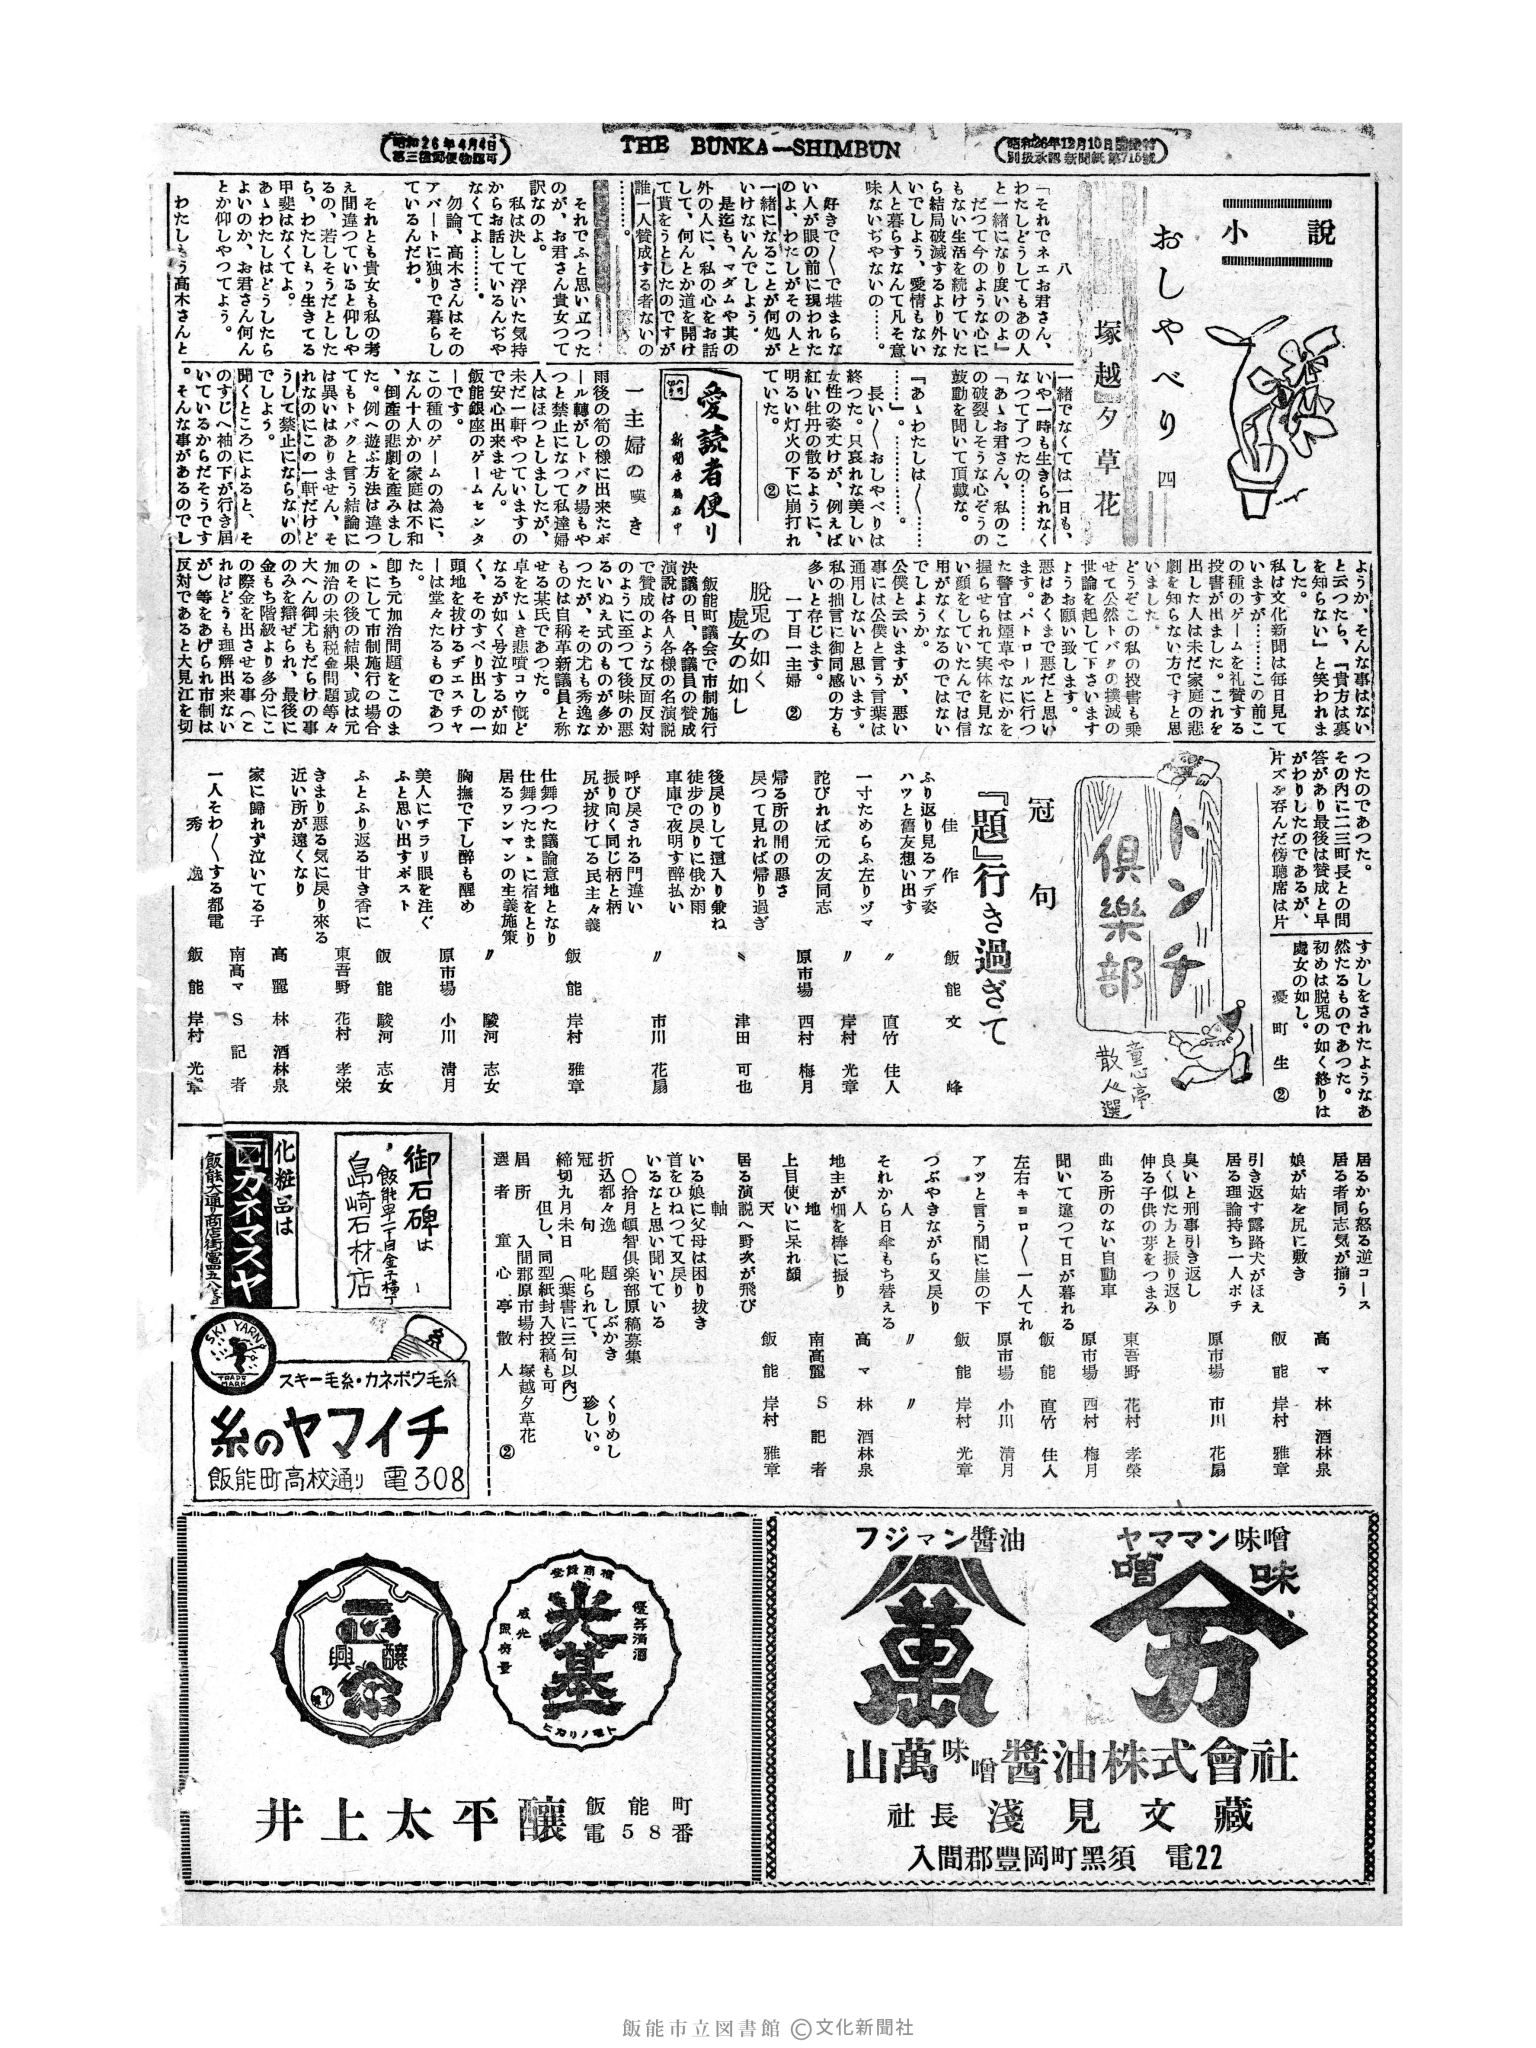 昭和26年4月4日
第三種郵便物認可
THE BUNKA—SHIMBUN
昭和26年12月10日
別扱承認新聞紙第715號
小説
おしやべり 四
塚越夕草花
八
「それでネエお君さん、
わたしどうしてもあの人
と一緒になり度いのよ」
だつて今のような心に
もない生活を続けていた
ら結局破滅するより外な
いでしよう、愛情もない
人と暮らすなんて凡そ意
味ないぢやないの……。
好きで〱で堪まらな
い人が眼の前に現われた
のよ、わたしがその人と
一緒になることが何処が
いけないんでしよう。
是迄も、マダムや其の
外の人に、私の心をお話
して、何んとか道を開け
て貰をうとしたのですが
誰一人賛成する者ないの
………。
それでふと思い立つた
のが、お君さん貴女つて
訳なのよ。
私は決して浮いた気持
からお話しているんぢや
なくてよ………。
勿論、高木さんはその
アパートに独りで暮らし
ているんだわ。
それとも貴女も私の考
え間違つていると仰しや
るの、若しそうだとした
ら、わたしもう生きてる
甲斐はなくてよ。
あゝわたしはどうしたら
よいのか、お君さん何ん
とか仰しやつてよう。
わたしもう高木さんと
一緒でなくては一日も、
いや一時も生きられなく
なつて了つたの………
「あゝお君さん、私のこ
の破裂しそうな心ぞうの
鼓動を聞いて頂戴な。
『あゝわたしは〱……
……』。…………。
長い〱おしやべりは
終つた。只哀れな美しい
女性の姿丈けが、例えば
紅い牡丹の散るように、
明るい灯火の下に崩打れ
ていた。 ②
愛読者便り
新聞展騒在中
一主婦の嘆き
雨後の筍の様に出来たボ
ール轉がしトバク場もや
つと禁止になつて私達婦
人はほつとしましたが、
未だ一軒やつていますの
で安心出来ません。
飯能銀座のゲームセンタ
ーです。
この種のゲームの為に、
なん十人かの家庭は不和
、倒産の悲劇を産みまし
た。例へ遊ぶ方法は違つ
てもトバクと言う結論に
は異いはありません、そ
れなのにこの一軒だけど
うして禁止にならないの
でしよう。
聞くところによると、そ
のすじへ袖の下が行き届
いているからだそうです
。そんな事があるのでし
ようか、そんな事はない
と云つたら、「貴方は裏
を知らない」と笑われま
した。
私は文化新聞は毎日見て
いますが………この前こ
の種のゲームを礼賛する
投書が出ました。これを
出した人は未だ家庭の悲
劇を知らない方ですと思
いました。
どうぞこの私の投書も乗
せて公然トバクの撲滅の
世論を起して下さいます
ようお願い致します。
悪はあくまで悪だと思い
ます。パトロールに行つ
た警官は煙草やなにかを
握らせられて実体を見な
い顔をしていたんでは信
用がなくなるのではない
でしようか。
公僕と云いますが、悪い
事には公僕と言う言葉は
通用しないと思います。
私の拙言に御同感の方も
多いと存じます。
一丁目一主婦 ②
脱兎の如く
處女の如し
飯能町議会で市制施行
決議の日、各議員の賛成
演説は各人各様の名演説
で賛成のような反面反対
のように至つて後味の悪
るいぬえ式のものが多か
つたが、その尤も秀逸な
ものは自稱革新議員と称
せる某氏であつた。
卓をたゝき悲噴コウ慨ど
なるが如く号泣するが如
く、そのすべり出しの一
頭地を抜けるヂエスチヤ
ーは堂々たるものであつ
た。
卽ち元加治問題をこのま
ゝにして市制施行の場合
のその後の結果、或は元
加治の未納税金問題等々
大へん御尤もだらけの事
のみを辯ぜられ、最後に
金もち階級より多分にこ
の際金を出させる事（こ
れはどうも理解出来ない
が）等をあげられ市制は
反対であると大見江を切
つたのであつた。
その内に二三町長との問
答があり最後は賛成と早
がわりしたのであるが、
片ズを呑んだ傍聴席は片
すかしをされたようなあ
然たるものであつた。
初めは脱兎の如く終りは
處女の如し。
憂町生 ②
トンチ
倶樂部
童心亭
散人選
冠句
『題』行き過ぎて
佳作
ふり返り見るアデ姿 飯能 文峰
ハツと舊友想い出す 〃 直竹 佳人
一寸ためらふ左りヅマ 〃 岸村 光章
詫びれば元の友同志 原市場 西村 梅月
帰る所の間の悪さ
戻つて見れば帰り過ぎ 〃 津田 可也
後戻りして這入り兼ね
徒歩の戻りに俄か雨
車庫で夜明す醉払い
呼び戻される門違い 〃 市川 花扇
振り向く同じ柄と柄
尻が抜けてる民主々義
仕舞つた議論意地となり 飯能 岸村 雅章
仕舞つたまゝに宿をとり
居るワンマンの主義施策
胸撫で下し醉も醒め 〃 駿河 志女
美人にチラリ眼を注ぐ 原市場 小川 清月
ふと思い出すポスト
ふとふり返る甘き香に 飯能 駿河 志女
きまり悪る気に戻り來る 東吾野 花村 孝栄
近い所が遠くなり
家に歸れず泣いてる子 高麗 林 酒林泉
南高マ S記者
一人そわ〱する都電 飯能 岸村 光章
秀逸
居るから怒る逆コース
居る者同志気が揃う 高マ 林 酒林泉
娘が姑を尻に敷き 飯能 岸村 雅章
引き返す露路犬がほえ
居る理論持ち一人ボチ 原市場 市川 花扇
臭いと刑事引き返し
良く似た方と振り返り
伸る子供の芽をつまみ 東吾野 花村 孝榮
曲る所のない自動車 原市場 西村 梅月
聞いて違つて日が暮れる 飯能 直竹 佳人
左右キヨロ〱一人てれ 原市場 小川 清月
アツと言う間に崖の下 飯能 岸村 光章
つぶやきながら又戻り 〃 〃
人
それから日傘もち替える 高マ 林 酒林泉
地主が畑を棒に振り
地
上目使いに呆れ顔 南高麗 S記者
天
居る演説へ野次が飛び 飯能 岸村 雅章
軸
いる娘に父母は困り抜き
首をひねつて又戻り
いるなと思い聞いている
○拾月頓智倶楽部原稿募集
折込都々逸 題 しぶかき くりめし
冠句 叱られて、 珍しい。
締切九月末日 （葉書に三句以內）
但し、同型紙封入投稿も可
屆所 入間郡原市場村 塚越夕草花
選者 童心亭散人 ②
御石碑は
飯能町一丁目金子横丁
島崎石材店
化粧品は
カネマスヤ
飯能大通り商店街電四五八番
SKI YARN
TRADE MARK
糸
スキー毛糸・カネボウ毛糸
糸のヤマイチ
飯能町高校通り 電308
ヤママン味噌
味噌
万
フジマン醬油
萬
山萬味噌醬油株式會社
社長 淺見文藏
入間郡豐岡町黑須 電22
登録商標
優等清酒
光基
威光
トモノリカヒ
釀
興
井上太平釀
飯能町
電58番
飯能市立図書館 ©文化新聞社